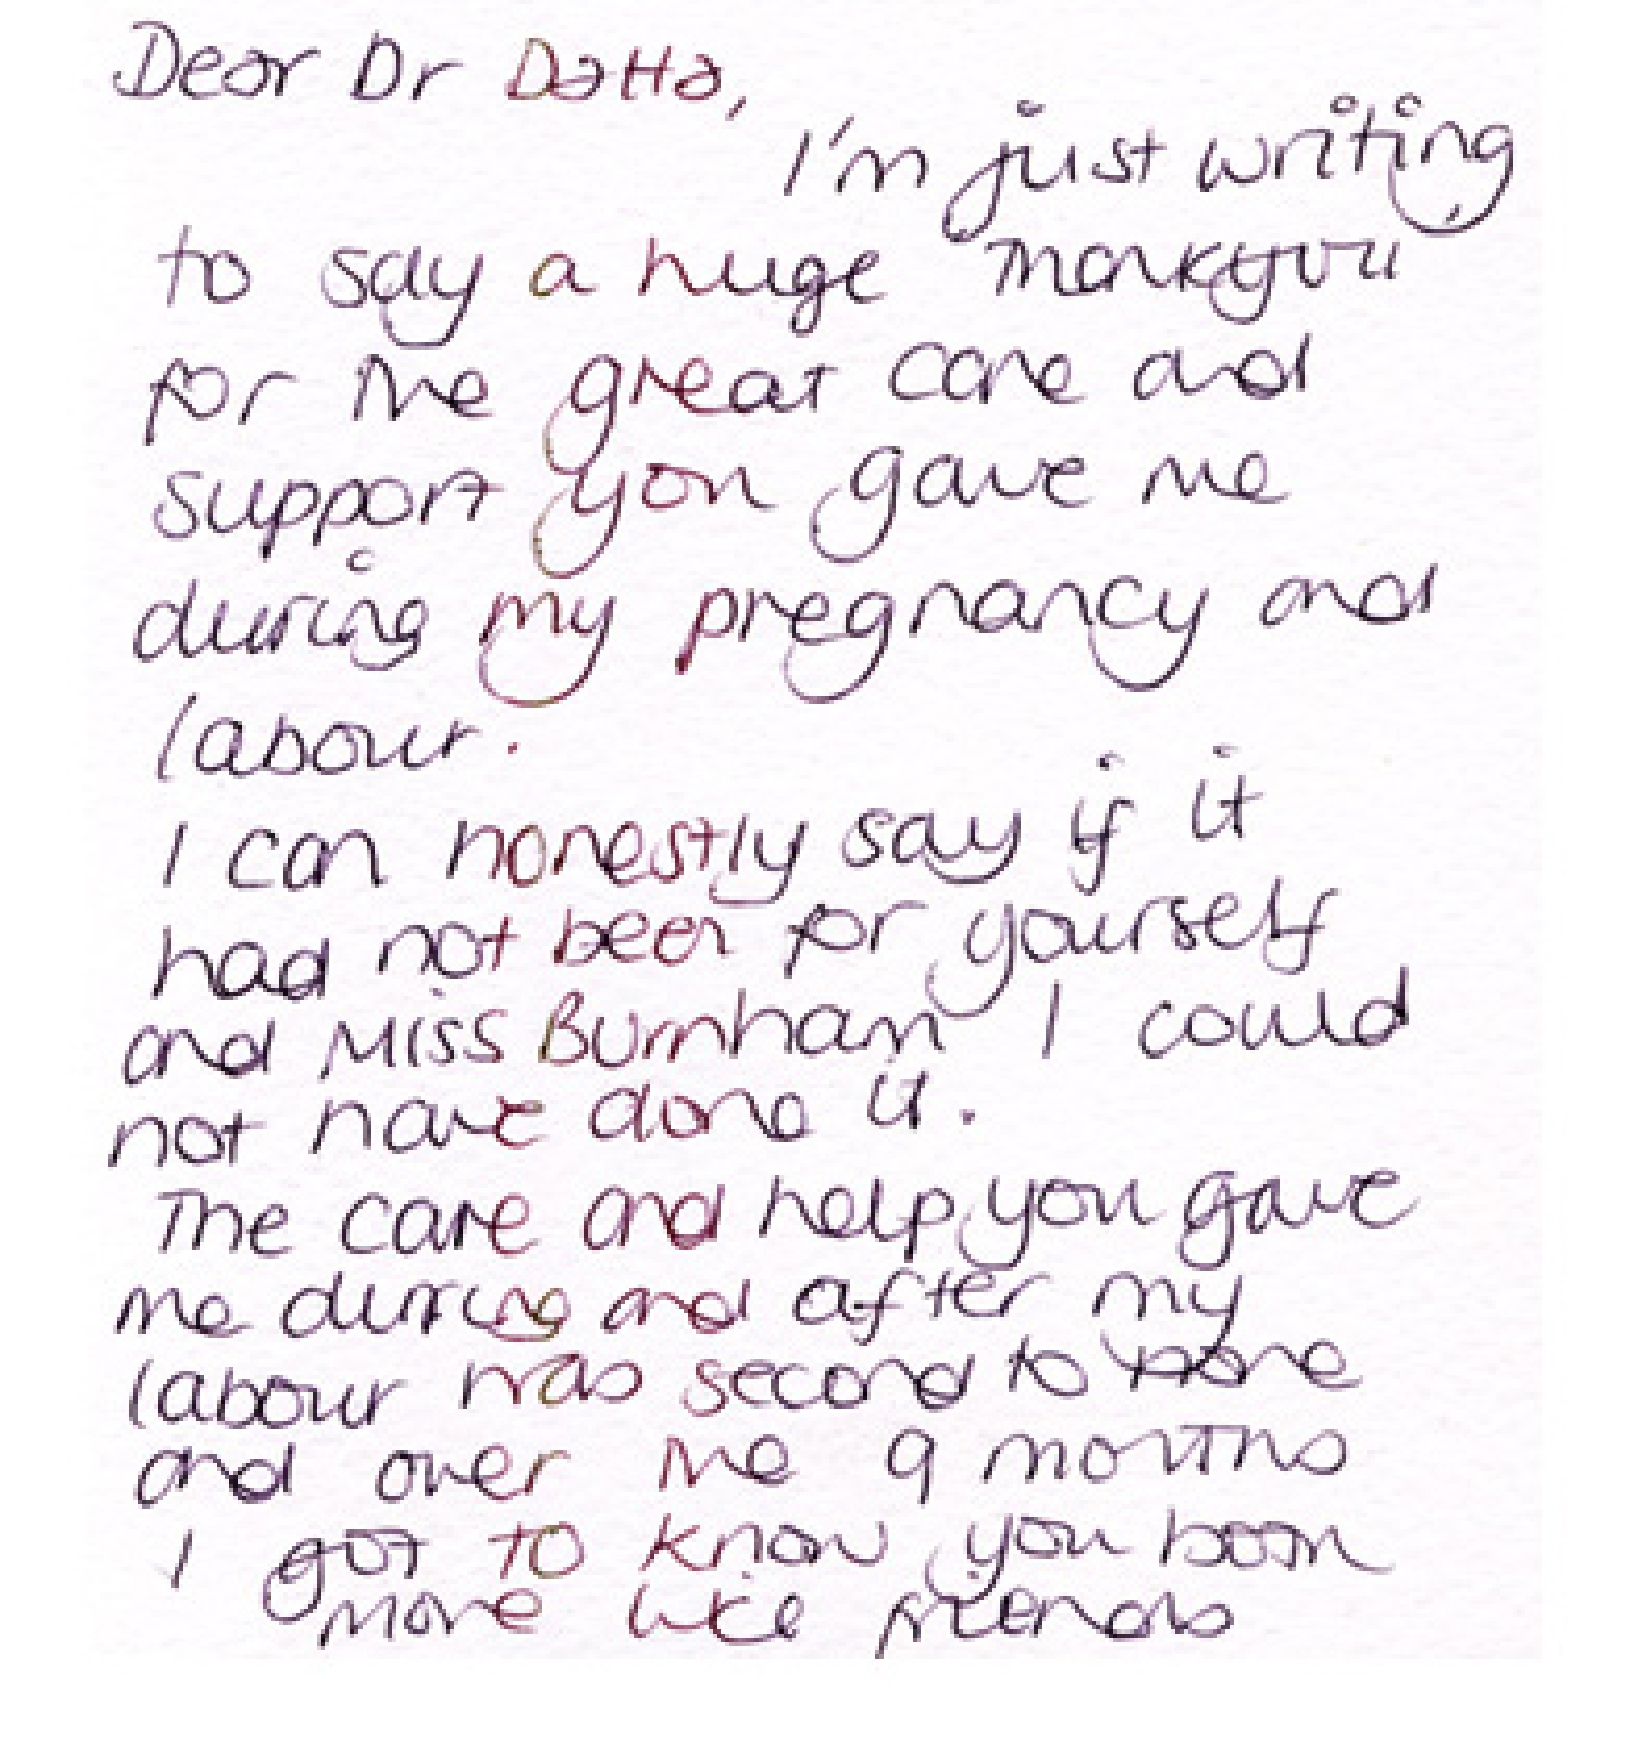 Dear Dr Datta,
I'm just writing
to say a huge thankyou
for the great care and
support you gave me
during my pregnancy and
labour.
I can honestly say if it
had not been for yourself
and Miss Burnham I could
not have done it.
The care and help you gave
me during and after my
labour was second to none
and over the 9 months
I got to know you both
more like friends